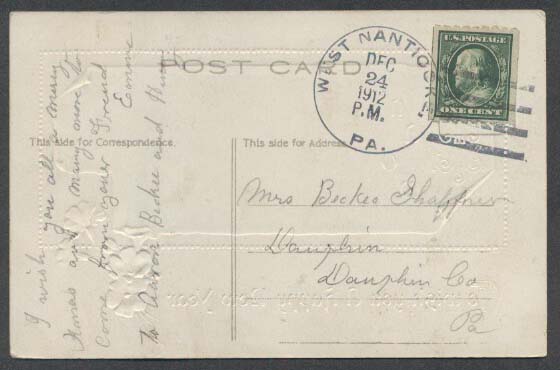 POST CARD
WEST NANTICOKE
DEC
24
1912
P.M.
PA.
U.S. POSTAGE
ONE CENT
This side for Correspondence.
This side for Address.
I wish you all a merry
Xmas and many more to
Come from your Friend
To Aaron Beckee and
Mrs Beckee Shaffner
Dauphin
Dauphin Co
Pa